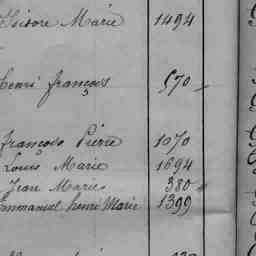 Isidore Marie 1494
henri françois 570
françois Pierre 1070
Louis Marie 1694
Jean Marie 380
Emmanuel henri Marie 1399